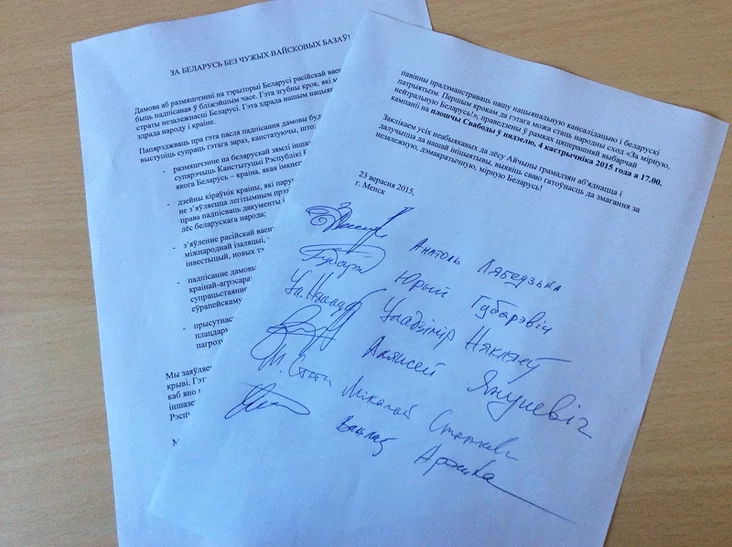 ЗА БЕЛАРУСЬ БЕЗ ЧУЖЫХ ВАЙСКОВЫХ БАЗАЎ!
Дамова аб размяшчэнні на тэрыторыі Беларусі расійскай
быць падпісаная ў бліжэйшым часе. Гэта згубны крок, які
страты незалежнасці Беларусі. Гэта здрада нашым
здрада народу і краіне.
Папярэджваць пра гэта пасля падпісання дамовы
выступіць супраць гэтага зараз, канстатуючы, што
- размяшчэнне на беларускай зямлі
супярэчыць Канстытуцыі Рэспублікі
якога Беларусь – краіна, якая
- дзеянні кіраўнік краіны, які
не з'яўляецца легітымным
права падпісваць дакументы і
лёс беларускага народа;
- з'яўленне расійскай
міжнароднай ізаляцыі,
інвестыцый, новых
- падпісанне дамовы
краінай-агрэсарам
супрацьстаянне
еўрапейскаму
- прысутнасць
плацдарм
пагрозу
Мы заяўляем
крыві. Гэта
каб яно
павінны прадэманстраваць нашу нацыянальную кансалідацыю і беларускі
патрыятызм. Першым крокам да гэтага можа стаць народны сход «За мірную,
нейтральную Беларусь!», праведзены ў рамках цяперашняй выбарчай
кампаніі на плошчы Свабоды ў нядзелю, 4 кастрычніка 2015 года а 17.00.
Заклікаем усіх неабыякавых да лёсу Айчыны грамадзян аб'яднацца і
далучыцца да нашай ініцыятывы, выявіць сваю гатоўнасць да змагання за
незалежную, дэмакратычную, мірную Беларусь!
23 верасня 2015,
г. Менск
Анатоль Лябедзька
Юрый Губарэвіч
Уладзімір Някляеў
Аляксей Янукевіч
Мікалай Статкевіч